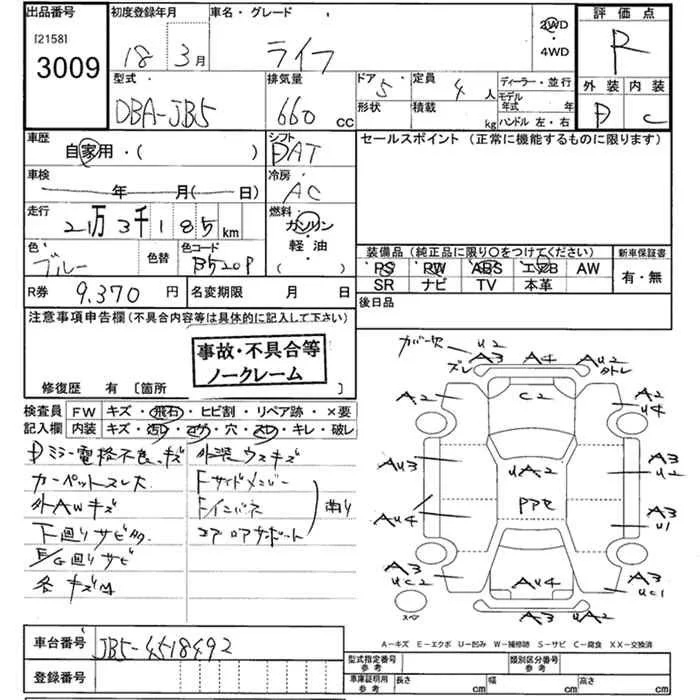 出品番号
[2158]
3009
初度登録年月
18 3月
車名・グレード
ライフ
2WD
・
4WD
評価点
R
外装 内装
D C
型式
DBA-JB5
排気量
660 cc
ドア 5
形状
定員 4人
積載 kg
ディーラー・並行
モデル年式 年
ハンドル 左・右
車歴
自家用・( )
シフト
DAT
セールスポイント (正常に機能するものに限ります)
車検
年 月( 日)
冷房
AC
走行
2万3千185km
燃料
ガソリン
・
軽油
( )
色
ブルー
色替
色コード
B520P
装備品 (純正品に限り○をつけてください)
PS PW ABS エアB AW
SR ナビ TV 本革
新車保証書
有・無
R券 9,370 円
名変期限 月 日
後日品
注意事項申告欄(不具合内容等は具体的に記入して下さい)
事故・不具合等
ノークレーム
修復歴 有 [箇所
検査員 FW キズ・飛石・ヒビ割・リペア跡・×要
記入欄 内装 キズ・汚レ・コゲ・穴・スレ・キレ・破レ
Dミラー電格不良、キズ
カーペットスレ大
外AWキズ
下廻りサビ
E/G廻りサビ
各キズ
外装ウスキズ
Fサイドメンバー
Fインパネ
コアロアサポート
曲り
カバー欠 U2
ズレ A3 A4 AU2
外レ
A2 C2 A2
U4
AU3 UA2 A3
U2
AU4 PアセA3
U1
A3 AU4 A3
UC2 UC1
スペア
A3 UA2
A-キズ E-エクボ U-凹み W-補修跡 S-サビ C-腐食 XX-交換済
車台番号 JB5-4518492
登録番号
型式指定番号
参考
類別区分番号
参考
車庫証明用
参考
長さ cm
幅 cm
高さ cm